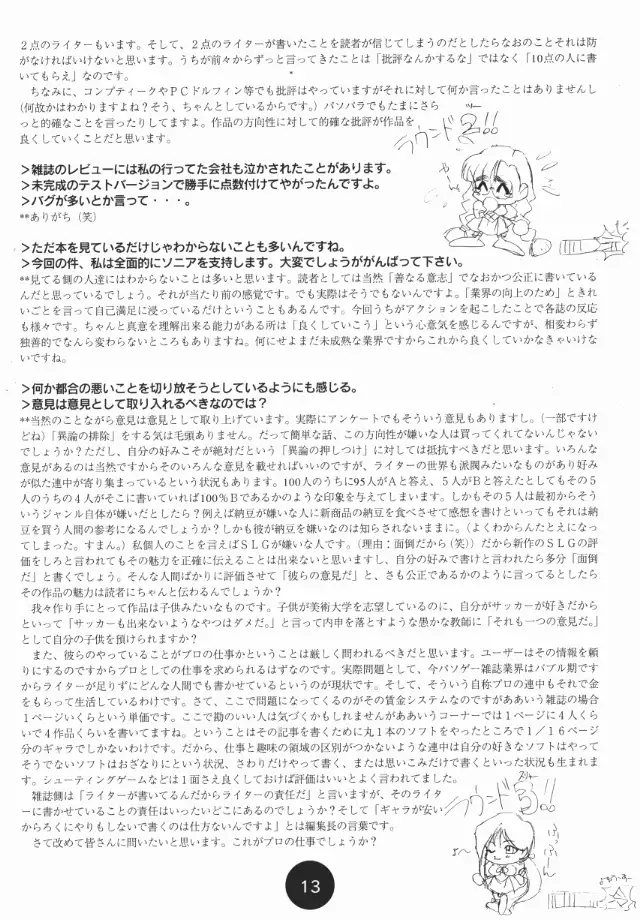 ２点のライターもいます。そして、２点のライターが書いたことを読者が信じてしまうのだとしたらなおのことそれは防
がなければいけないと思います。うちが前々からずっと言ってきたことは「批評なんかするな」ではなく「10点の人に書
いてもらえ」なのです。
　ちなみに、コンプティークやＰＣドルフィン等でも批評はやっていますがそれに対して何か言ったことはありませんし
(何故かはわかりますよね？そう、ちゃんとしているからです。)パソパラでもたまにさら
っと的確なことを言ったりしてますよ。作品の方向性に対して的確な批評が作品を
良くしていくことだと思います。
ラウンド2!!
＞雑誌のレビューには私の行ってた会社も泣かされたことがあります。
＞未完成のテストバージョンで勝手に点数付けてやがったんですよ。
＞バグが多いとか言って・・・。
**ありがち（笑）
＞ただ本を見ているだけじゃわからないことも多いんですね。
＞今回の件、私は全面的にソニアを支持します。大変でしょうががんばって下さい。
**見てる側の人達にはわからないことは多いと思います。読者としては当然「善なる意志」でなおかつ公正に書いている
んだと思っているでしょう。それが当たり前の感覚です。でも実際はそうでもないんですよ。「業界の向上のため」ときれ
いごとを言って自己満足に浸っているだけということもあるんです。今回うちがアクションを起こしたことで各誌の反応
も様々です。ちゃんと真意を理解出来る能力がある所は「良くしていこう」という心意気を感じるんですが、相変わらず
独善的でなんら変わらないところもありますね。何にせよまだ未成熟な業界ですからこれから良くしていかなきゃいけな
いですね。
＞何か都合の悪いことを切り放そうとしているようにも感じる。
＞意見は意見として取り入れるべきなのでは？
**当然のことながら意見は意見として取り上げています。実際にアンケートでもそういう意見もありますし。(一部ですけ
どね)「異論の排除」をする気は毛頭ありません。だって簡単な話、この方向性が嫌いな人は買ってくれてないんじゃない
でしょうか？ただし、自分の好みこそが絶対だという「異論の押しつけ」に対しては抵抗すべきだと思います。いろんな
意見があるのは当然ですからそのいろんな意見を載せればいいのですが、ライターの世界も派閥みたいなものがあり好み
が似た連中が寄り集まっているという状況もあります。100人のうちに95人がＡと答え、５人がＢと答えたとしてもその５
人のうちの４人がそこに書いていれば100％Ｂであるかのような印象を与えてしまいます。しかもその５人は最初からそう
いうジャンル自体が嫌いだとしたら？例えば納豆が嫌いな人に新商品の納豆を食べさせて感想を書けといってもそれは納
豆を買う人間の参考になるんでしょうか？しかも彼が納豆を嫌いなのは知らされないままに。（よくわからんたとえになっ
てしまった。すまん。）私個人のことを言えばＳＬＧが嫌いな人です。（理由：面倒だから（笑））だから新作のＳＬＧの評
価をしろと言われてもその魅力を正確に伝えることは出来ないと思いますし、自分の好みで書けと言われたら多分「面倒
だ」と書くでしょう。そんな人間ばかりに評価させて「彼らの意見だ」と、さも公正であるかのように言ってるとしたら
その作品の魅力は読者にちゃんと伝わるんでしょうか？
　我々作り手にとって作品は子供みたいなものです。子供が美術大学を志望しているのに、自分がサッカーが好きだから
といって「サッカーも出来ないようなやつはダメだ。」と言って内申を落とすような愚かな教師に「それも一つの意見だ。」
として自分の子供を預けられますか？
　また、彼らのやっていることがプロの仕事かということは厳しく問われるべきだと思います。ユーザーはその情報を頼
りにするのですからプロとしての仕事を求められるはずなのです。実際問題として、今パソゲー雑誌業界はバブル期です
からライターが足りずにどんな人間でも書かせているというのが現状です。そして、そういう自称プロの連中もそれで金
をもらって生活しているわけです。さて、ここで問題になってくるのがその賃金システムなのですがああいう雑誌の場合
１ページいくらという単価です。ここで勘のいい人は気づくかもしれませんがああいうコーナーでは１ページに４人くら
いで４作品くらいを書いてますね。ということはその記事を書くために丸１本のソフトをやったところで１／１６ページ
分のギャラでしかないわけです。だから、仕事と趣味の領域の区別がつかないような連中は自分の好きなソフトはやって
そうでないソフトはおざなりという状況、さわりだけやって書く、または思いこみだけで書くといった状況も生まれま
す。シューティングゲームなどは１面さえ良くしておけば評価はいいとよく言われてました。
　雑誌側は「ライターが書いてるんだからライターの責任だ」と言いますが、そのライタ
ーに書かせていることの責任はいったいどこにあるのでしょうか？そして「ギャラが安い
からろくにやりもしないで書くのは仕方ないんですよ」とは編集長の言葉です。
　さて改めて皆さんに問いたいと思います。これがプロの仕事でしょうか？
ラウンド3!!
13